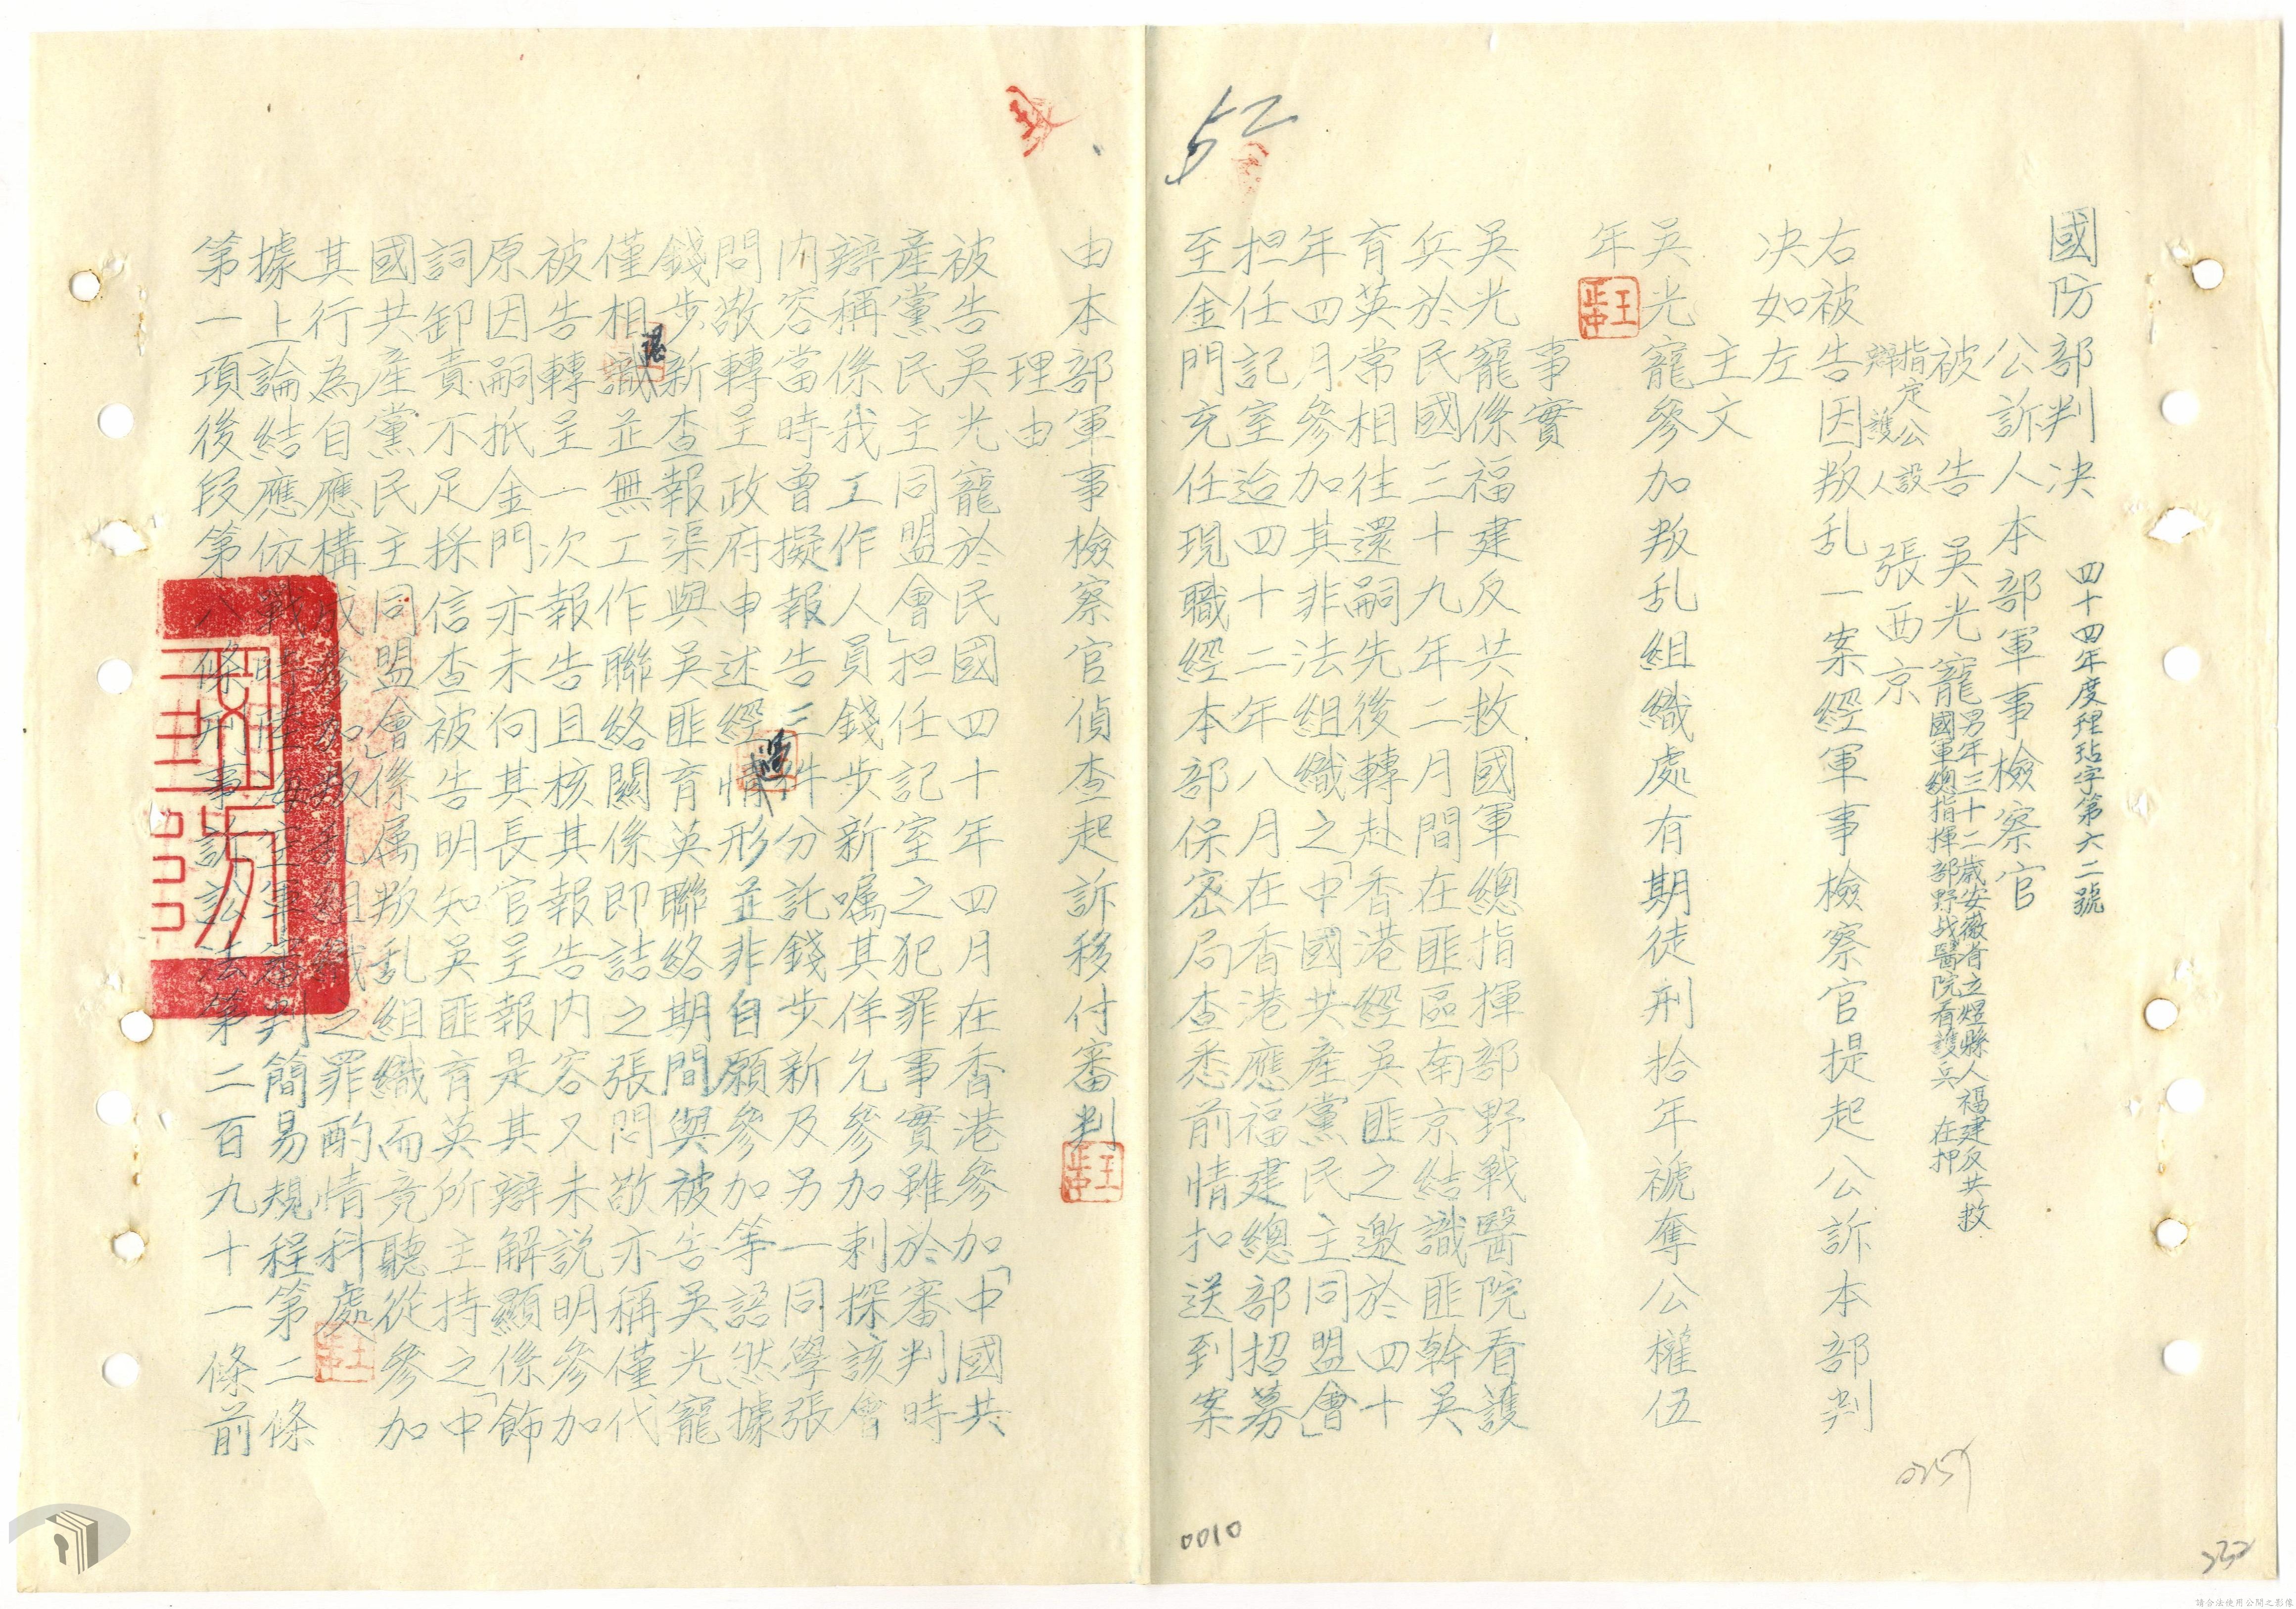 國防部判决
四十四年度理玷字第六二號
公訴人本部軍事檢察官
被告 吳光寵 男年三十二歲安徽省立煌縣人福建反共救
國軍總指揮部野战醫院看護兵 在押
指定公設
辯護人 張西京
右被告因叛乱一案經軍事檢察官提起公訴本部判
决如左
主文
吳光寵參加叛乱組織處有期徒刑拾年褫奪公權伍
年
事實
吳光寵係福建反共救國軍總指揮部野戰醫院看護
兵於民國三十九年二月間在匪區南京結識匪幹吳
育英常相往還嗣先後轉赴香港經吳匪之邀於四十
年四月參加其非法組織之「中國共産黨民主同盟會」
担任記室迨四十二年八月在香港應福建總部招募
至金門充任現職經本部保密局查悉前情扣送到案
由本部軍事檢察官偵查起訴移付審判
理由
被告吳光寵於民國四十年四月在香港參加「中國共
産黨民主同盟會」担任記室之犯罪事實雖於審判時
辯稱係我工作人員錢步新囑其佯允參加刺探該會
内容當時曾擬報告三件分託錢步新及另一同學張
問敬轉呈政府申述經過情形並非自願參加等語然據
錢步新查報渠與吳匪育英聯絡期間與被告吳光寵
僅相識並無工作聯絡關係即詰之張問敬亦稱僅代
被告轉呈一次報告且核其報告内容又未説明參加
原因嗣抵金門亦未向其長官呈報是其辯解顯係飾
詞卸責不足採信查被告明知吳匪育英所主持之「中
國共産黨民主同盟會」係属叛乱組織而竟聽從參加
其行為自應構成參加叛乱組織之罪酌情科處
據上論結應依戰時陸海空軍審判簡易規程第二條
第一項後段第八條刑事訴訟法第二百九十一條前
52
王正中
王正中
王正中
0010
0257
232
請合法使用公開之影像